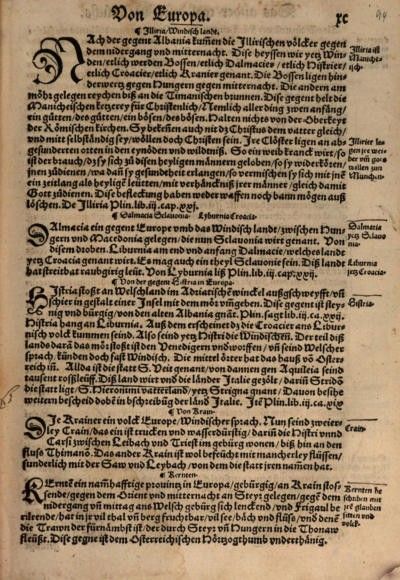 Von Europa.
xc
¶ Illiria/Windisch landt.
NAch der gegne Albania kum̃en die Illirischen völcker gegen
dem nidergang vnd mitternacht. Dise heyssen wir yetz Win-
den/etlich werden Bossen/etlich Dalmacier/etlich Histrier/
etlich Croacier/etlich Kranier genant. Die Bossen ligen hin-
derwertz gegen Hungern gegen mitternacht. Die andern am
möhr gelegen reychen biß an die Timanischen brunnen. Dise gegent helt die
Manicheischen ketzerey für Christenlich/Nemlich aller ding zwen anfäng/
ein gůtten/des gůtten/ein bösen/des bösen. Halten nichts von der Oberkeyt
der Römischen kirchen. Sy bekeñen auch nit dz Christus dem vatter gleich/
vnd mitt selbständig sey/wöllen doch Christen sein. Ire Clöster ligen an ab-
gesunderten orten in den eynöden vnd wildtniß. So ein weib kranck wirt/so
ist der brauch/dz sy sich zů disen heyligen männern geloben/so sy widerkören/
jnen zůdienen/wa dañ sy gesundtheit erlangen/so vermischen sy sich mit jnẽ
ein zeitlang als heyligẽ leütten/mit verhäncknuß jrer mãnner/gleich damit
Gott zůdienen. Dise befleckung haben weder waffen noch bann mögen auß
löschen. De Illiria Plin.lib.iij.cap.xxj.
Illiria ist
Maniche-
isch.
¶ Dalmacia Sclauonia. Lyburnia Croacia.
DAlmacia ein gegent Europe vmb das Windisch landt/zwischen Hun-
gern vnd Macedonia gelegen/die nun Sclauonia wirt genant. Von
disem droben. Liburnia am end vnd anfang Dalmacie/welches landt
yetz Croacia genant wirt. Es mag auch ein theyl Sclauonie sein. Diß landt
hat streitbat raubgirig leüt. Von Lyburnia liß Plin.lib.iij.cap.xxij.
Dalmatia
yetz Sclauo
nia.
Liburnia
yetz Croacia.
¶ Von der gegent Histria in Europa.
HIstria stoßt an Welschland im Adriatischẽ winckel außschweyfft/vñ
schier in gestalt einer Insel mit dem mör vmgeben. Dise gegent ist stey-
nig vnd bürgig/von den alten Albania gnãt. Plin.sagt lib.iij.ca.xix.
Histria hang an Liburnia. Auß dem erscheinet dz die Croacier ans Libur-
nisch volck kummen seind. Also seind yetz Histri die Windischen. Der teil diß
lands darã das mör stoßt ist den Venedigern vnderworffen/vñ seind Welscher
sprach/künden doch fast Windisch. Die mittel örter hat das hauß vô Öster-
reich iñ. Allda ist die statt S. Veit genant/von dannen gen Aquileia seind
tausent roßsleüff. Diß landt wirt vnd die länder Italie gezölt/dariñ Stridõ
die statt ligt S. Hieronimi vatterland/yetz Strigna gnant/Dauon besihe
weitern bescheid dobẽ in bschreibũg der länd Italie. Itẽ Plin.lib.iij.ca.xix
Histria.
¶ Von Krain.
DIe Krainer ein volck Europe/Windischer sprach. Nun seind zweier-
ley Crain/das ein ist trucken vnd wasserdürstig/dariñ die Histri vnnd
Carsi zwischen Leibach vnd Triest im gebürg wonen/biß hin an den
fluß Thimanõ. Das ander Krain ist wol befeücht mit mancherley flüssen/
sunderlich mit der Saw vnd Leybach/von dem die statt jren namen hat.
Crain.
¶ Kernten.
KErntẽ ein namhafftige prouintz in Europa/gebürgig/an Krain stos-
sende/gegen dem Orient vnd mitternacht an Steyr gelegen/gegẽ dem
nidergang vñ mittag ans Welsch gebürg sich lenckend/vnd Frigaul be
rürende/hat in jr vil thal vñ berg fruchtbar/vil see/bäch vnd flüss/vnd denẽ
die Trawn der fürnämbst ist/der durch Steyr vñ Hungern in die Thonaw
fleüßt. Dise gegne ist dem Österreichischen Hörtzogthumb vnderthänig.